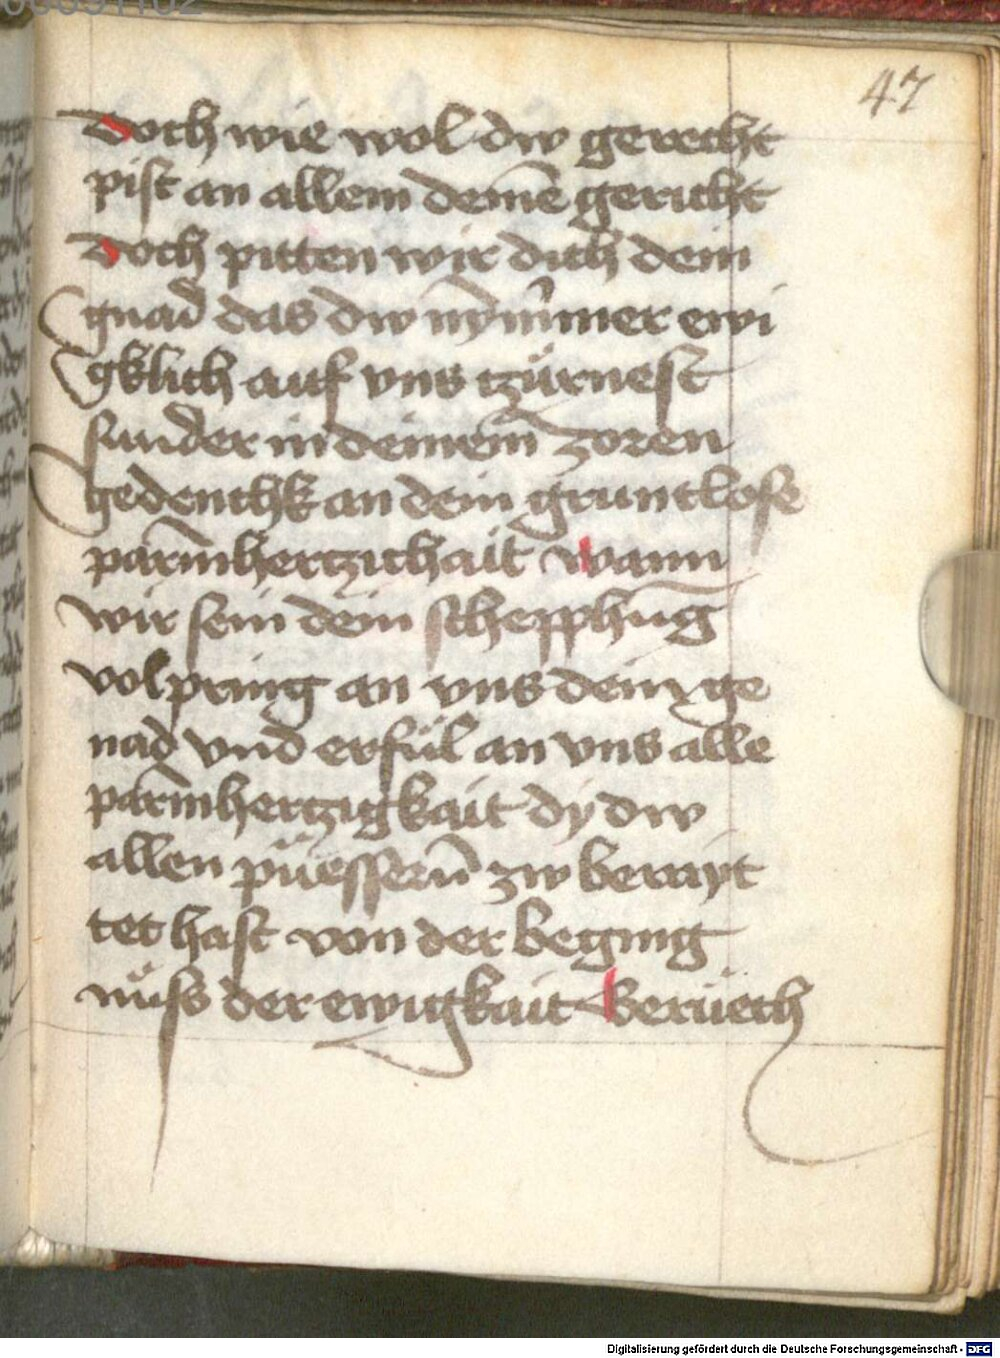 47
Doch wie wol dw gerecht
pist an allem deinē gericht
Doch pitten wir dich dein
gnad das dw nymmer ewi
gklich auf vns tzürnest
sunder in deinem zoren
gedenchk an dein gruntlose
parmhertzichait wann
wir sein dein schepphūg
volpring an vns dein ge
nad vnd erfül an vns alle
parmhertzigkait dy dw
allen püesserñ zw berayt
tet hast von der beging
nüss der ewigkait Berüech
Digitalisierung gefördert durch die Deutsche Forschungsgemeinschaft - DFG